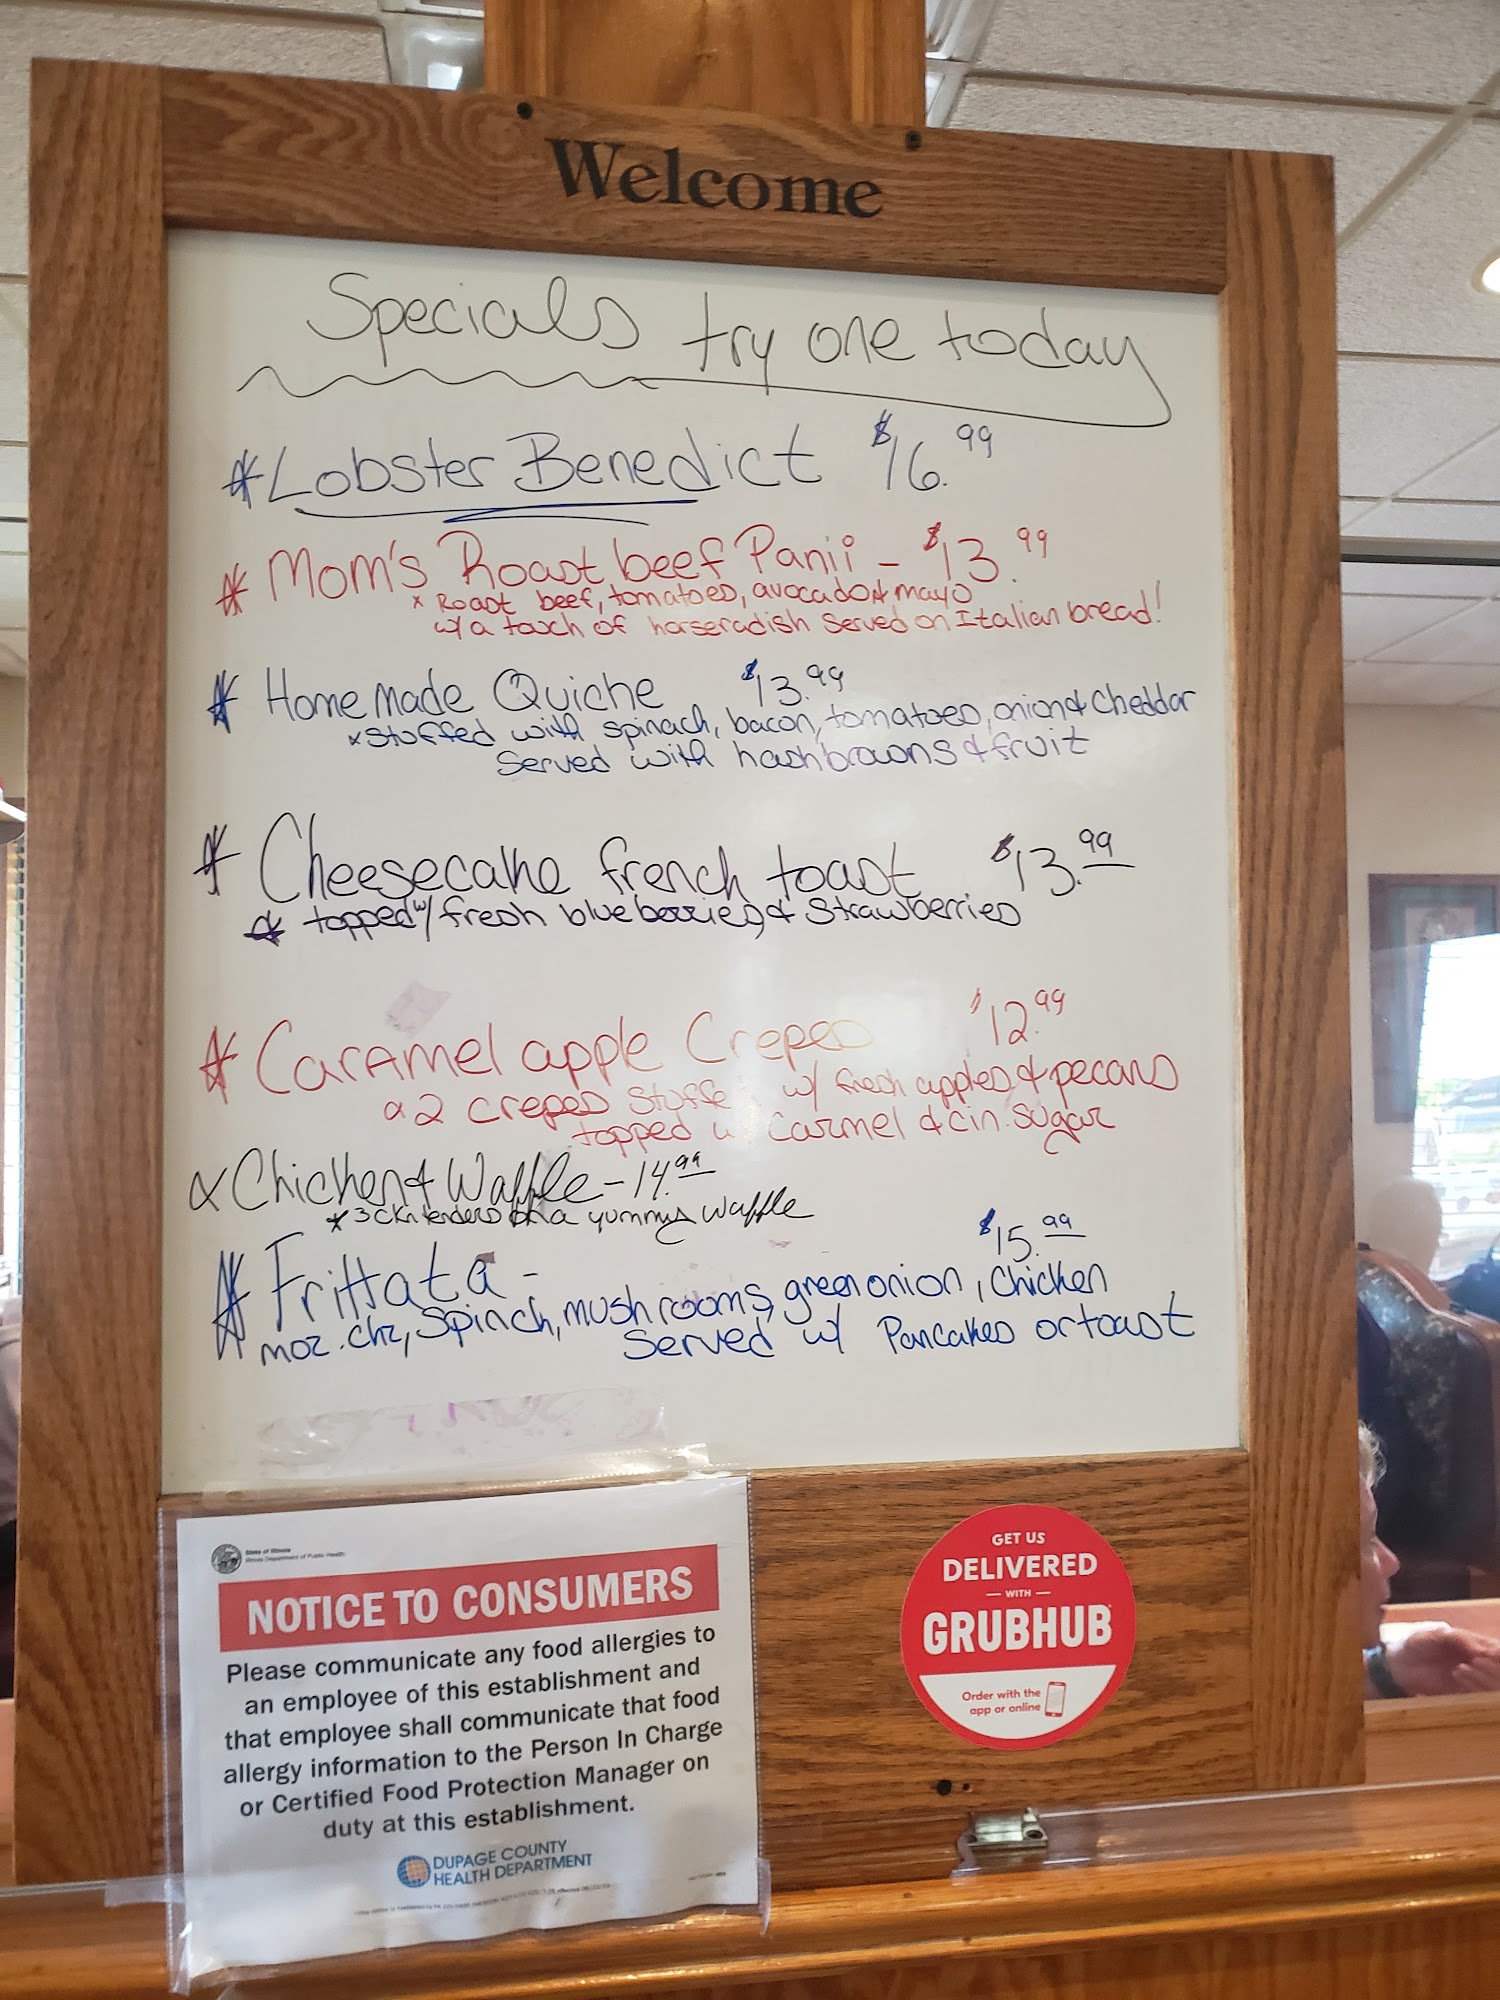 Welcome
Specials try one today
* Lobster Benedict $16.99
* Mom's Roast beef Panii - $13.99
* Roast beef, tomatoes, avocado & mayo
w/ a touch of horseradish served on Italian bread!
* Homemade Quiche $13.99
* stuffed with spinach, bacon, tomatoes, onion & cheddar
Served with hashbrowns & fruit
* Cheesecake french toast $13.99
* topped w/ fresh blueberries & strawberries
* Caramel apple Crepes $12.99
* 2 crepes stuffe w/ fresh apples & pecans
topped w carmel & cin. sugar
* Chicken & Waffle - 14.99
* 3 ckn tenders on a yummy waffle
* Frittata - $15.99
moz. chz, Spinch, mushrooms, green onion, chicken
Served w/ Pancakes or toast
State of Illinois
Illinois Department of Public Health
NOTICE TO CONSUMERS
Please communicate any food allergies to
an employee of this establishment and
that employee shall communicate that food
allergy information to the Person In Charge
or Certified Food Protection Manager on
duty at this establishment.
DUPAGE COUNTY
HEALTH DEPARTMENT
GET US
DELIVERED
— WITH —
GRUBHUB
Order with the
app or online